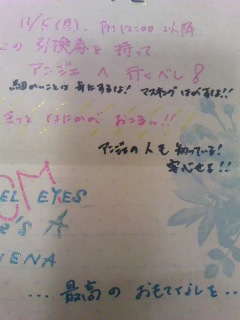 11/5(月)、PM12:00 以降
この 引換券を 持って
アンジェ へ 行くべし
細かいことは 気にするな! マスキング はがすな!!
きっと なにかが おこるぃ!!
アンジェの 人も 知っている!
安心せよ!!
EL EYES
e's A
IENA
... 最高の おもてなしを ...